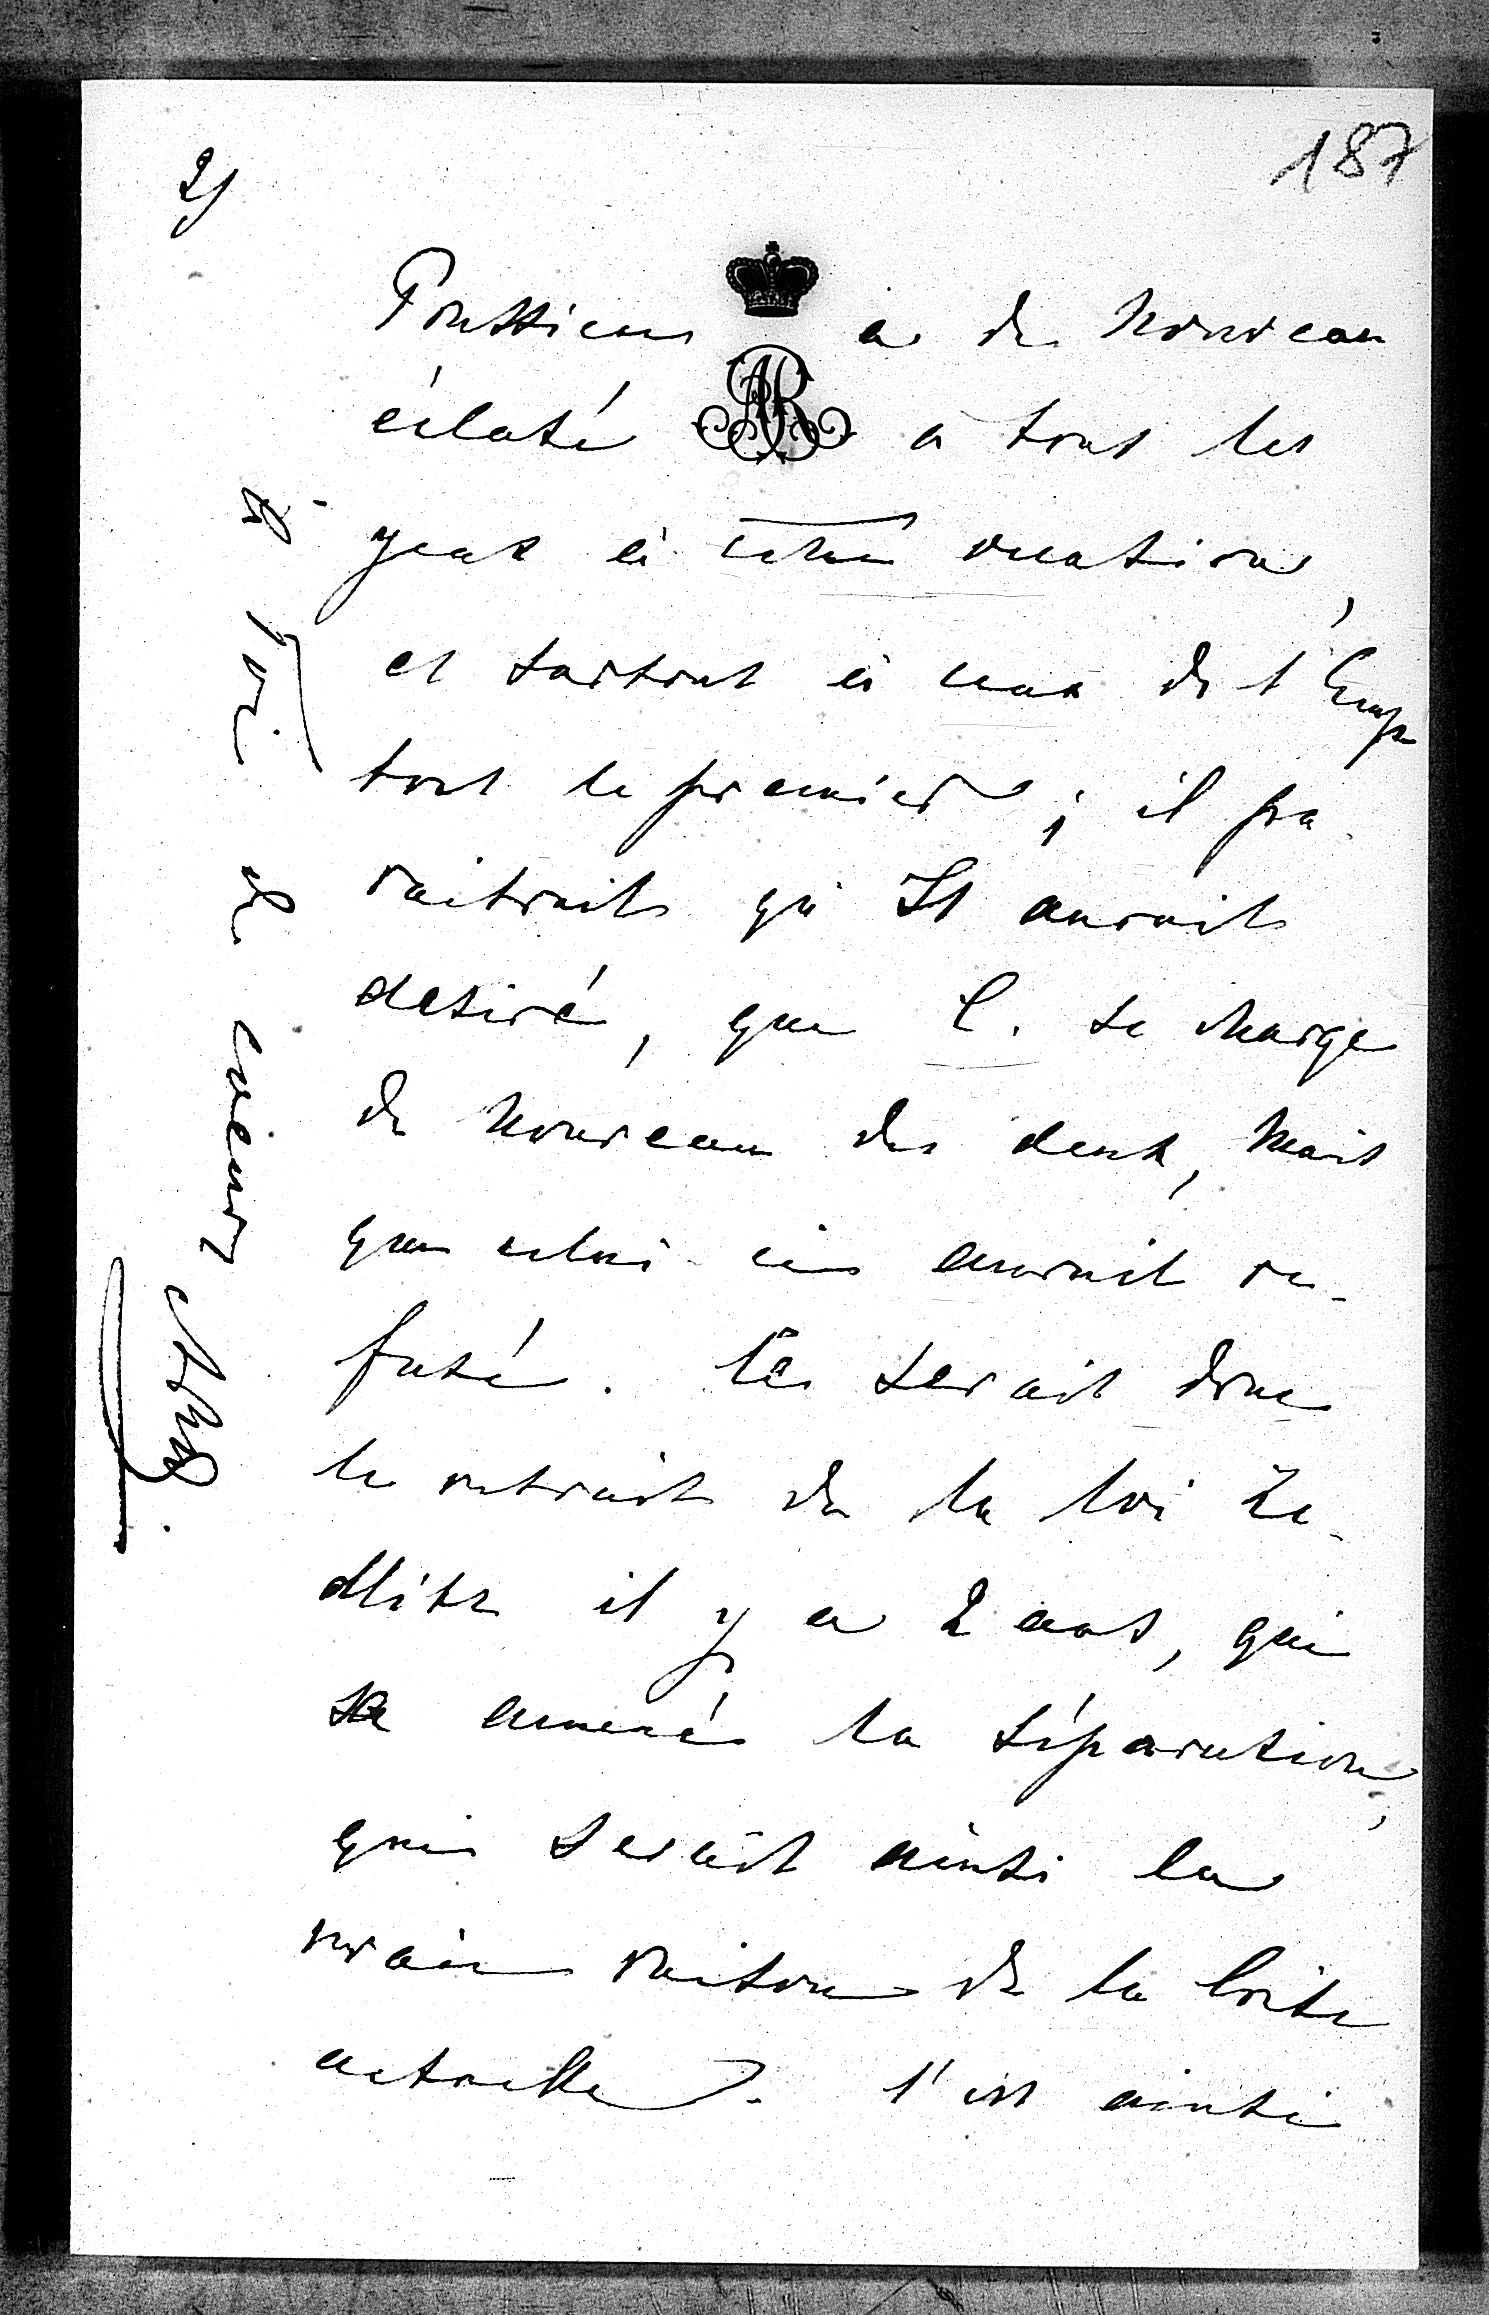 2)
187
Prussienne a de nouveau
éclaté à tous les
yeux à cette occasion,
et surtout à ceux de l'Emp
tout le premier; il pa-
raitrait qu'Il aurait
desiré, que C. se charge
de nouveau des deux, mais
que celui-ci aurait re-
fusé. Ce serait donc
le retrait de la loi Ze-
dlitz il y a 2 ans, qui
a amené la séparation,
qui serait ainsi la
vraie raison de la crise
actuelle. C'est ainsi
à Toi de coeur